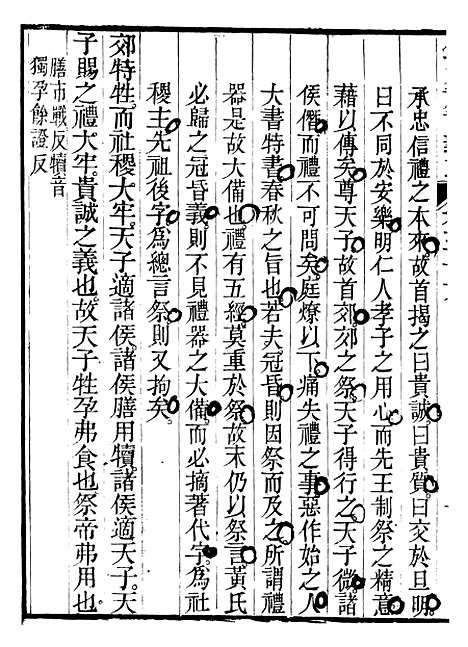 承忠信禮之本來故首揭之曰貴誠曰貴質曰交於旦明
曰不同於安樂明仁人孝子之用心而先王制祭之精意
藉以傳矣尊天子故首郊郊之祭天子得行之天子微諸
侯僭而禮不可問矣庭燎以下痛失禮之事惡作始之人
大書特書春秋之旨也若夫冠昏則因祭而及之所謂禮
器是故大備也禮有五經莫重於祭故末仍以祭言黃氏
必歸之冠昏義則不見禮器之大備而必摘著代字為社
稷主先祖後字為總言祭則又拘矣
郊特牲而社稷大牢天子適諸侯諸侯膳用犢諸侯適天子天
子賜之禮大牢貴誠之義也故天子牲孕弗食也祭帝弗用也
膳市戰反犢音
獨孕餘證反